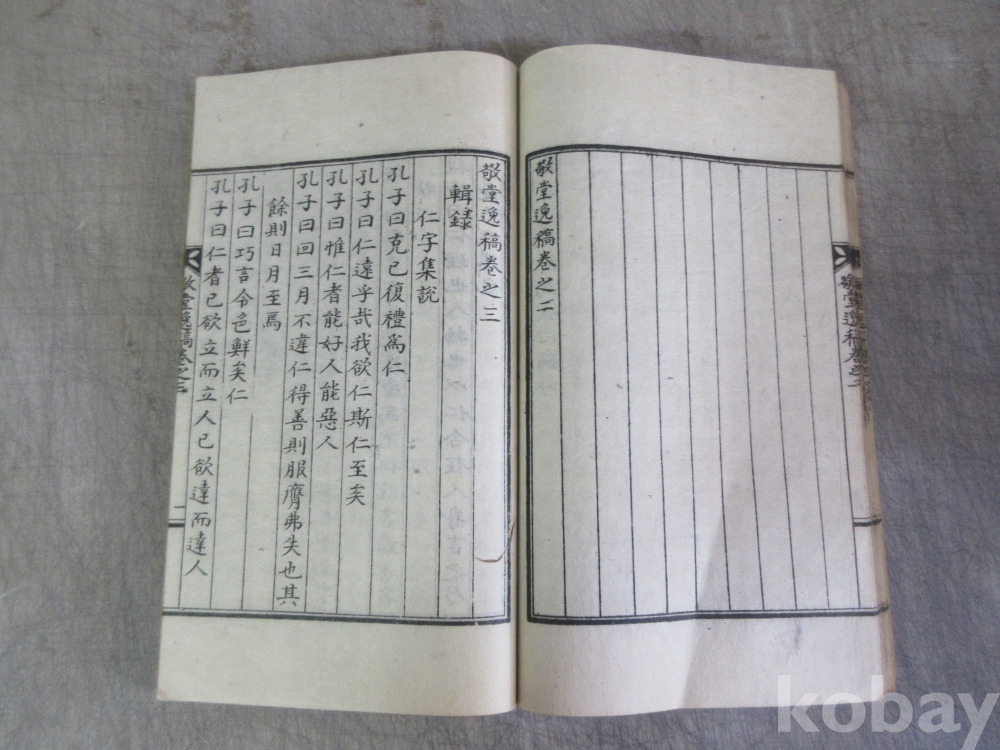 敬堂逸稿卷之二
敬堂逸稿卷之三
輯録
仁字集說
孔子曰克己復禮爲仁
孔子曰仁遠乎哉我欲仁斯仁至矣
孔子曰惟仁者能好人能惡人
孔子曰回三月不違仁得善則服膺弗失也其
餘則日月至焉
孔子曰巧言令色鮮矣仁
孔子曰仁者己欲立而立人己欲達而達人
敬堂逸稿卷之三
一
kobay